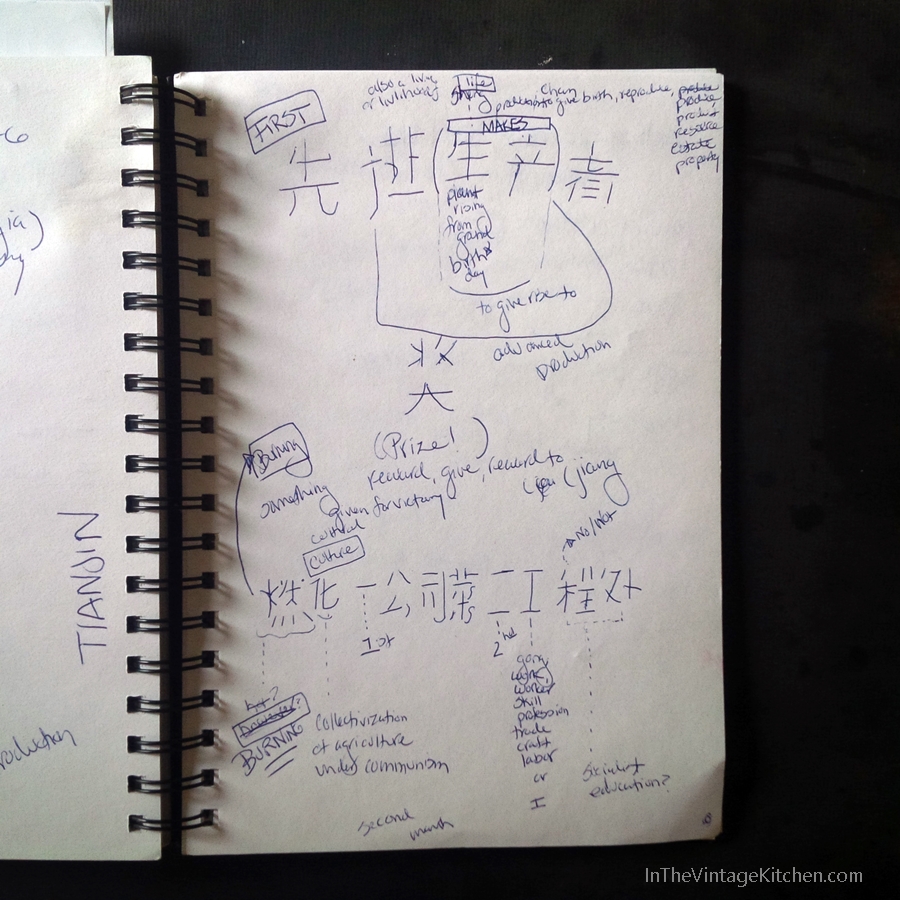 also a living
or livelihood
life
sheng
chan
production to give birth, reproduce, produce
produce
product
resource
estate
property
FIRST
MAKES
先 进 生 产 者
plant
rising
from
ground
birth
day
to give rise to
advanced
production
奖
(Prize!)
reward, give, reward to
jiang
Burning
something
given for victory
cultural
culture
No/Not
燃化一公司 二工程处
1st
2nd
gong
work,
worker
skill
profession
trade
craft
labor
or
I
BURNING
Collectivization
of agriculture
under communism
socialist
education?
second
month
TIANJIN
-6
jia)
roduction
InTheVintageKitchen.com